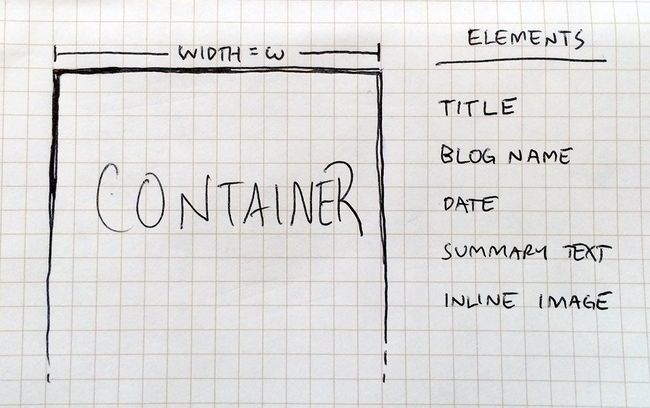 WIDTH = W
CONTAINER
ELEMENTS
TITLE
BLOG NAME
DATE
SUMMARY TEXT
INLINE IMAGE